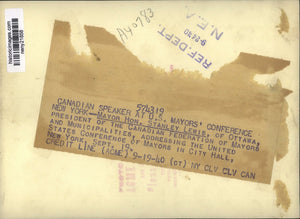 historicimages.com
A40783
REF. DEPT.
N.E.A.
574319
CANADIAN SPEAKER AT U.S. MAYORS' CONFERENCE
NEW YORK--MAYOR HON. STANLEY LEWIS, OF OTTAWA,
PRESIDENT OF THE CANADIAN FEDERATION OF MAYORS
AND MUNICIPALITIES, ADDRESSING THE UNITED
STATES CONFERENCE OF MAYORS IN CITY HALL,
NEW YORK, SEPT. 19.
CREDIT LINE (ACME) 9-19-40 (CT) NY CLV CLV CAN